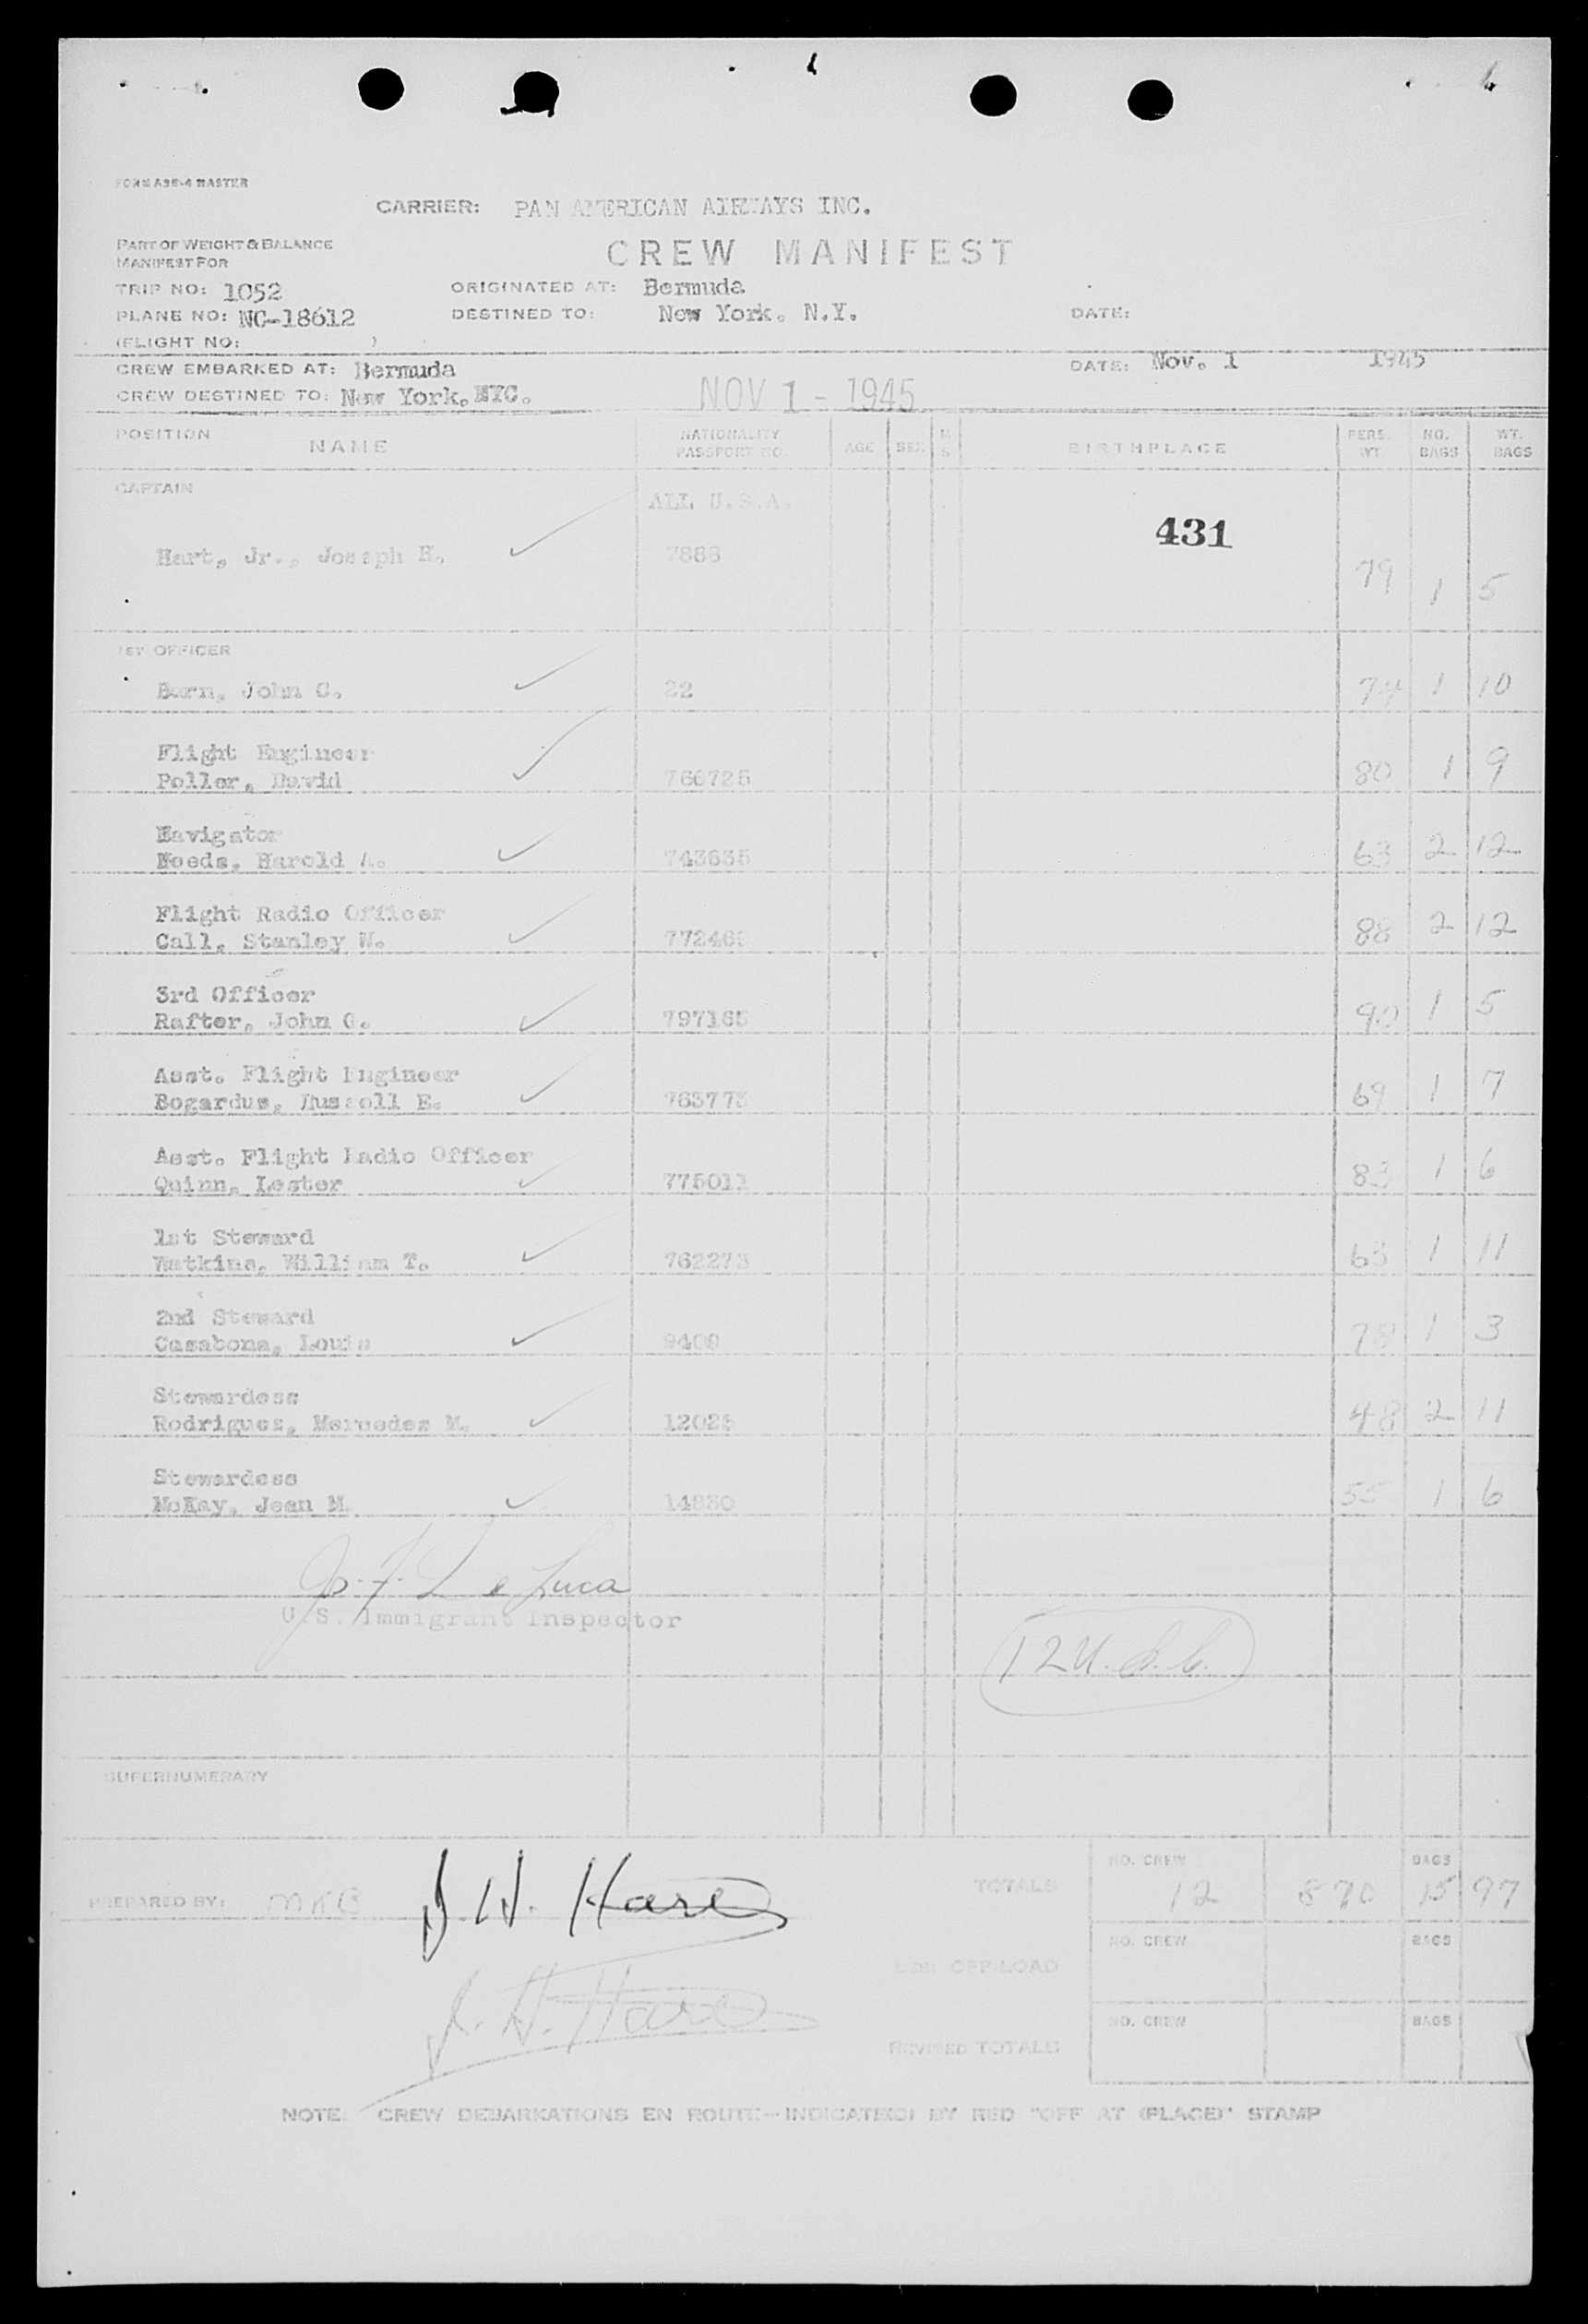 FORM A96-4 MASTER
CARRIER: PAN AMERICAN AIRWAYS INC.
PART OF WEIGHT & BALANCE
MANIFEST FOR
CREW MANIFEST
TRIP NO: 1052 ORIGINATED AT: Bermuda
PLANE NO: NC-18612 DESTINED TO: New York. N.Y. DATE:
(FLIGHT NO: )
CREW EMBARKED AT: Bermuda DATE: Nov. 1 1945
CREW DESTINED TO: New York. NYC. NOV 1 - 1945
POSITION NAME NATIONALITY PASSPORT NO. AGE SEX M S BIRTHPLACE PERS. WT NO. BAGS WT. BAGS
CAPTAIN ALL U.S.A.
431
Hart, Jr., Joseph H. 7888 79 1 5
1ST OFFICER
John C. 22 74 1 10
Flight Engineer
Poller, David 766725 80 1 9
Navigator
Noeds, Harold A. 743635 63 2 12
Flight Radio Officer
Call, Stanley W. 88 2 12
3rd Officer
Rafter, John G. 797165 90 1 5
Asst. Flight Engineer
Bogardus, Russell E. 763773 69 1 7
Asst. Flight Radio Officer
Quinn, Lester 775011 83 1 6
1st Steward
Watkins, William T. 762273 63 1 11
2nd Steward
Casabona, Louis 78 1 3
Stewardess
Rodriguez, Mercedes M. 48 2 11
Stewardess
McKay, Jean M. 14830 55 1 6
De Luca
U.S. Immigrant Inspector
12 U.S.C.
SUPERNUMERARY
NO. CREW BAGS
PREPARED BY: MKB J. H. Hart TOTALS 12 870 15 97
NO. CREW BAGS
OFF-LOAD
J. H. Hart
NO. CREW BAGS
REVISED TOTALS
NOTE: CREW DEBARKATIONS EN ROUTE—INDICATED BY RED "OFF AT (PLACE)" STAMP